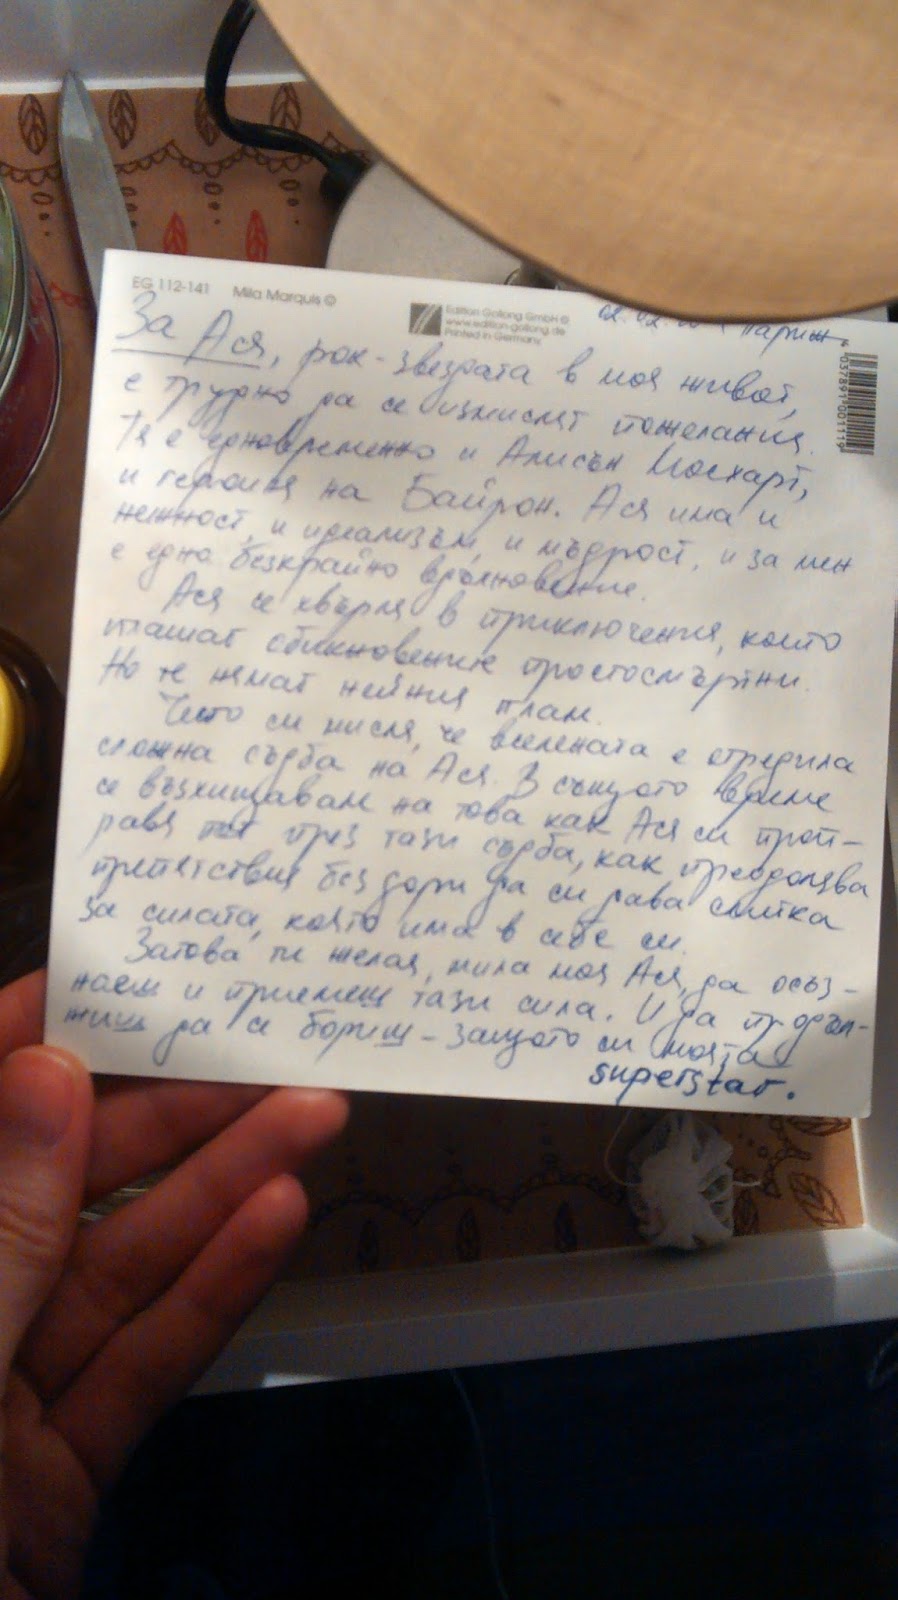 EG 112-141 Mila Marquis ©
Edition Gollong GmbH ©
www.edition-gollong.de
Printed in Germany
Париж
037891 001119
За Ася, рок-звездата в моя живот,
е трудно да се измислят пожелания.
Тя е едновременно и Алисън Мосхарт,
и героиня на Байрон. Ася има и
нежност, и идеализъм, и мъдрост, и за мен
е едно безкрайно вдъхновение.
Ася се хвърля в приключения, които
плашат обикновените простосмъртни.
Но те нямат нейния плам.
Често си мисля, че вселената е отредила
сложна съдба на Ася. В същото време
се възхищавам на това как Ася си проп-
равя път през тази съдба, как преодолява
препятствия без дори да си дава сметка
за силата, която има в себе си.
Затова ти желая, мила моя Ася, да осъз-
наеш и приемеш тази сила. И да продъл-
жиш да се бориш - защото си моята
superstar.